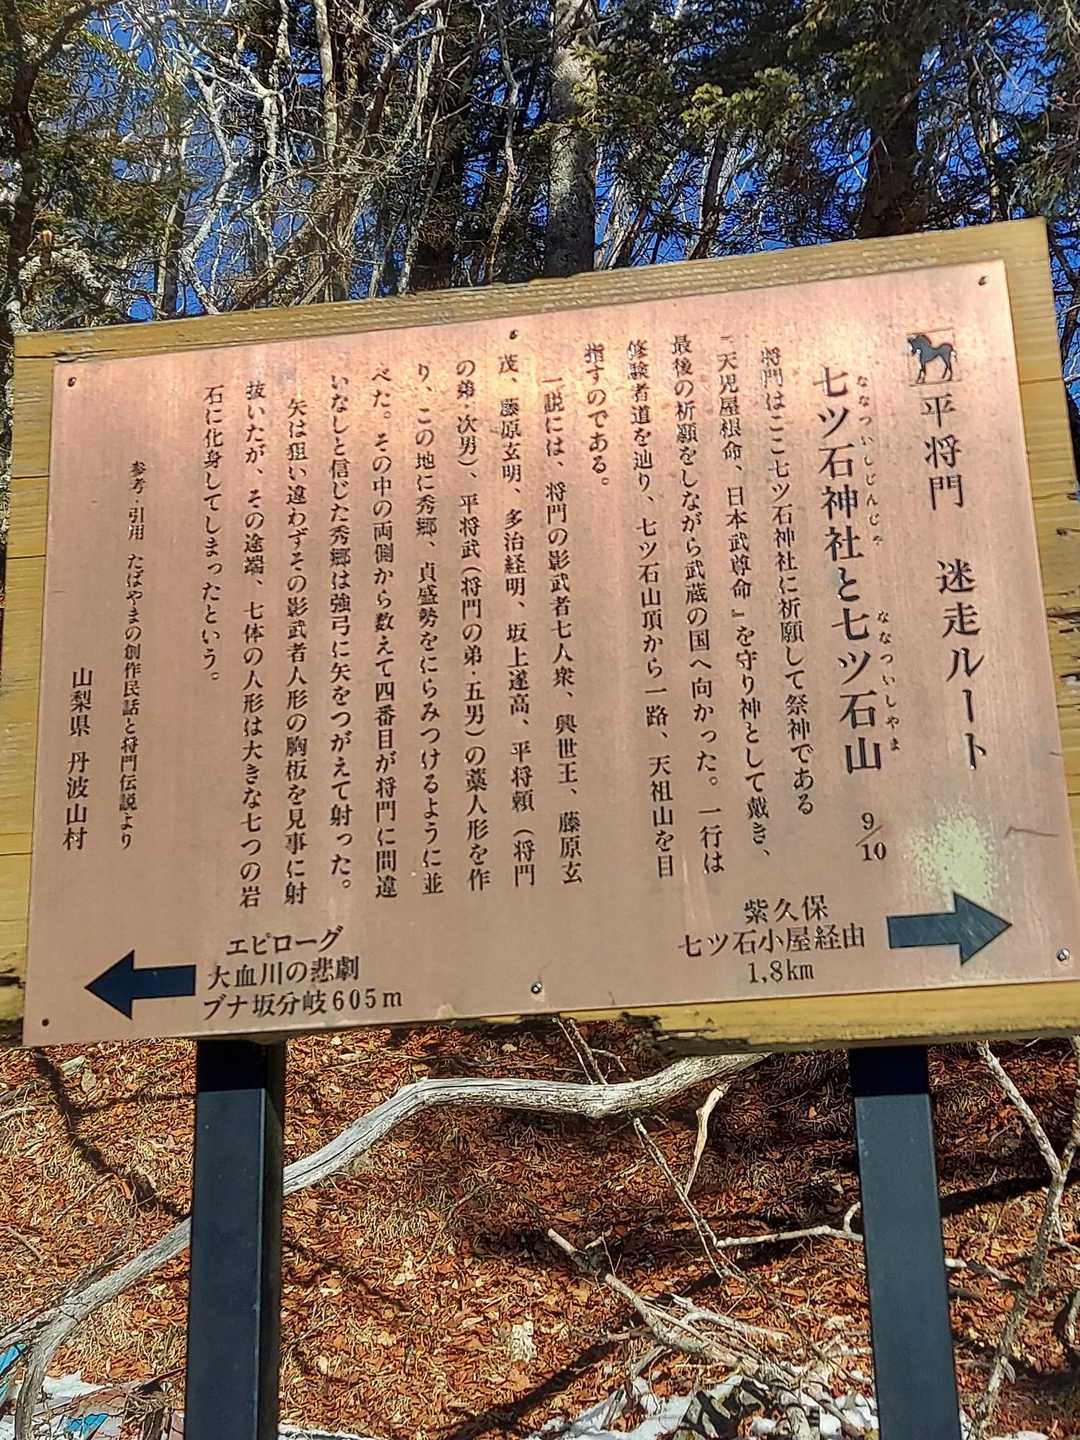 平将門　迷走ルート
七ツ石神社と七ツ石山 9/10
ななついしじんじゃ
ななついしやま
将門はここ七ツ石神社に祈願して祭神である
『天児屋根命、日本武尊命』を守り神として戴き、
最後の祈願をしながら武蔵の国へ向かった。一行は
修験者道を辿り、七ツ石山頂から一路、天祖山を目
指すのである。
一説には、将門の影武者七人衆、興世王、藤原玄
茂、藤原玄明、多治経明、坂上遂高、平将頼（将門
の弟・次男）、平将武（将門の弟・五男）の藁人形を作
り、この地に秀郷、貞盛勢をにらみつけるように並
べた。その中の両側から数えて四番目が将門に間違
いなしと信じた秀郷は強弓に矢をつがえて射った。
矢は狙い違わずその影武者人形の胸板を見事に射
抜いたが、その途端、七体の人形は大きな七つの岩
石に化身してしまったという。
参考・引用 たばやまの創作民話と将門伝説より
山梨県 丹波山村
紫久保
七ツ石小屋経由
1,8km
エピローグ
大血川の悲劇
ブナ坂分岐605m